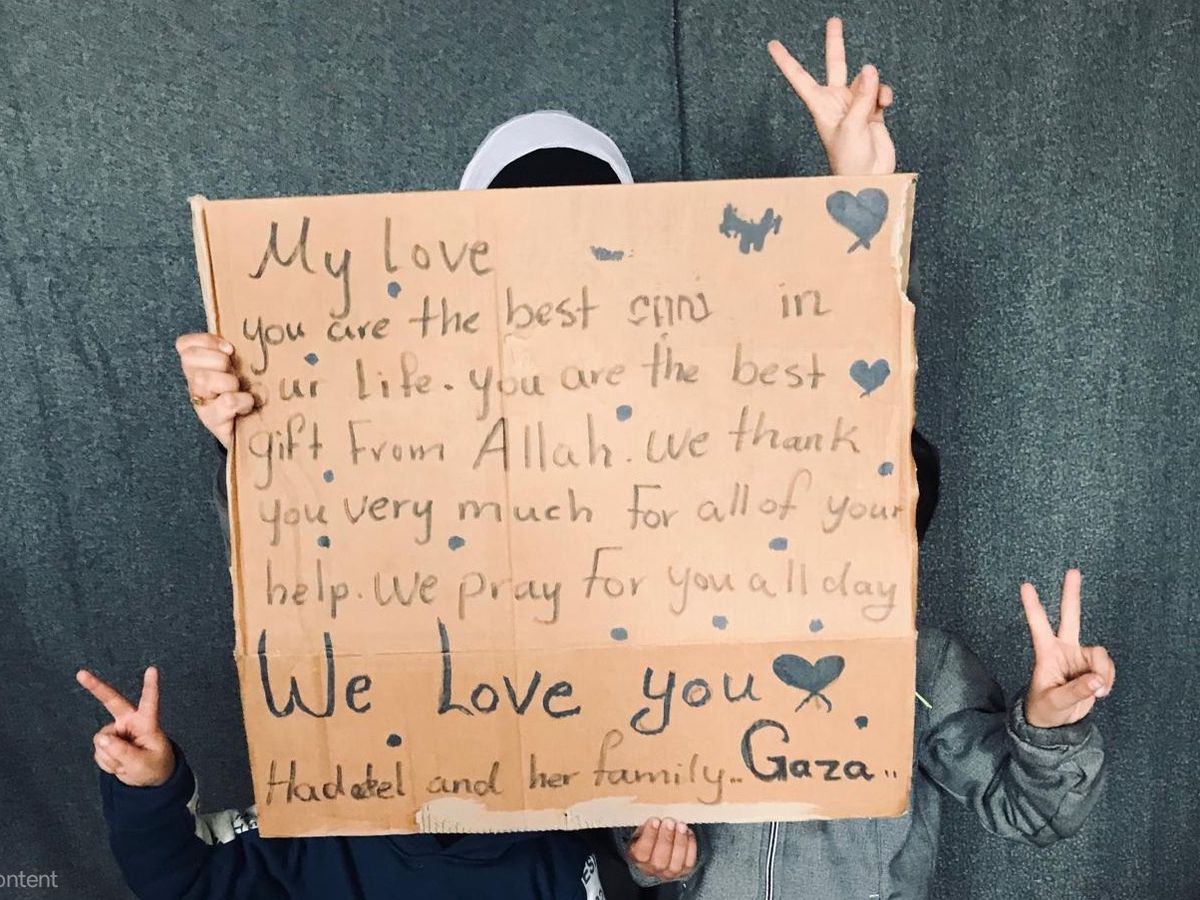 My love
you are the best in
our life. you are the best
gift from Allah. we thank
you very much for all of your
help. We pray for you all day
We Love you
and her family.. Gaza..
ontent